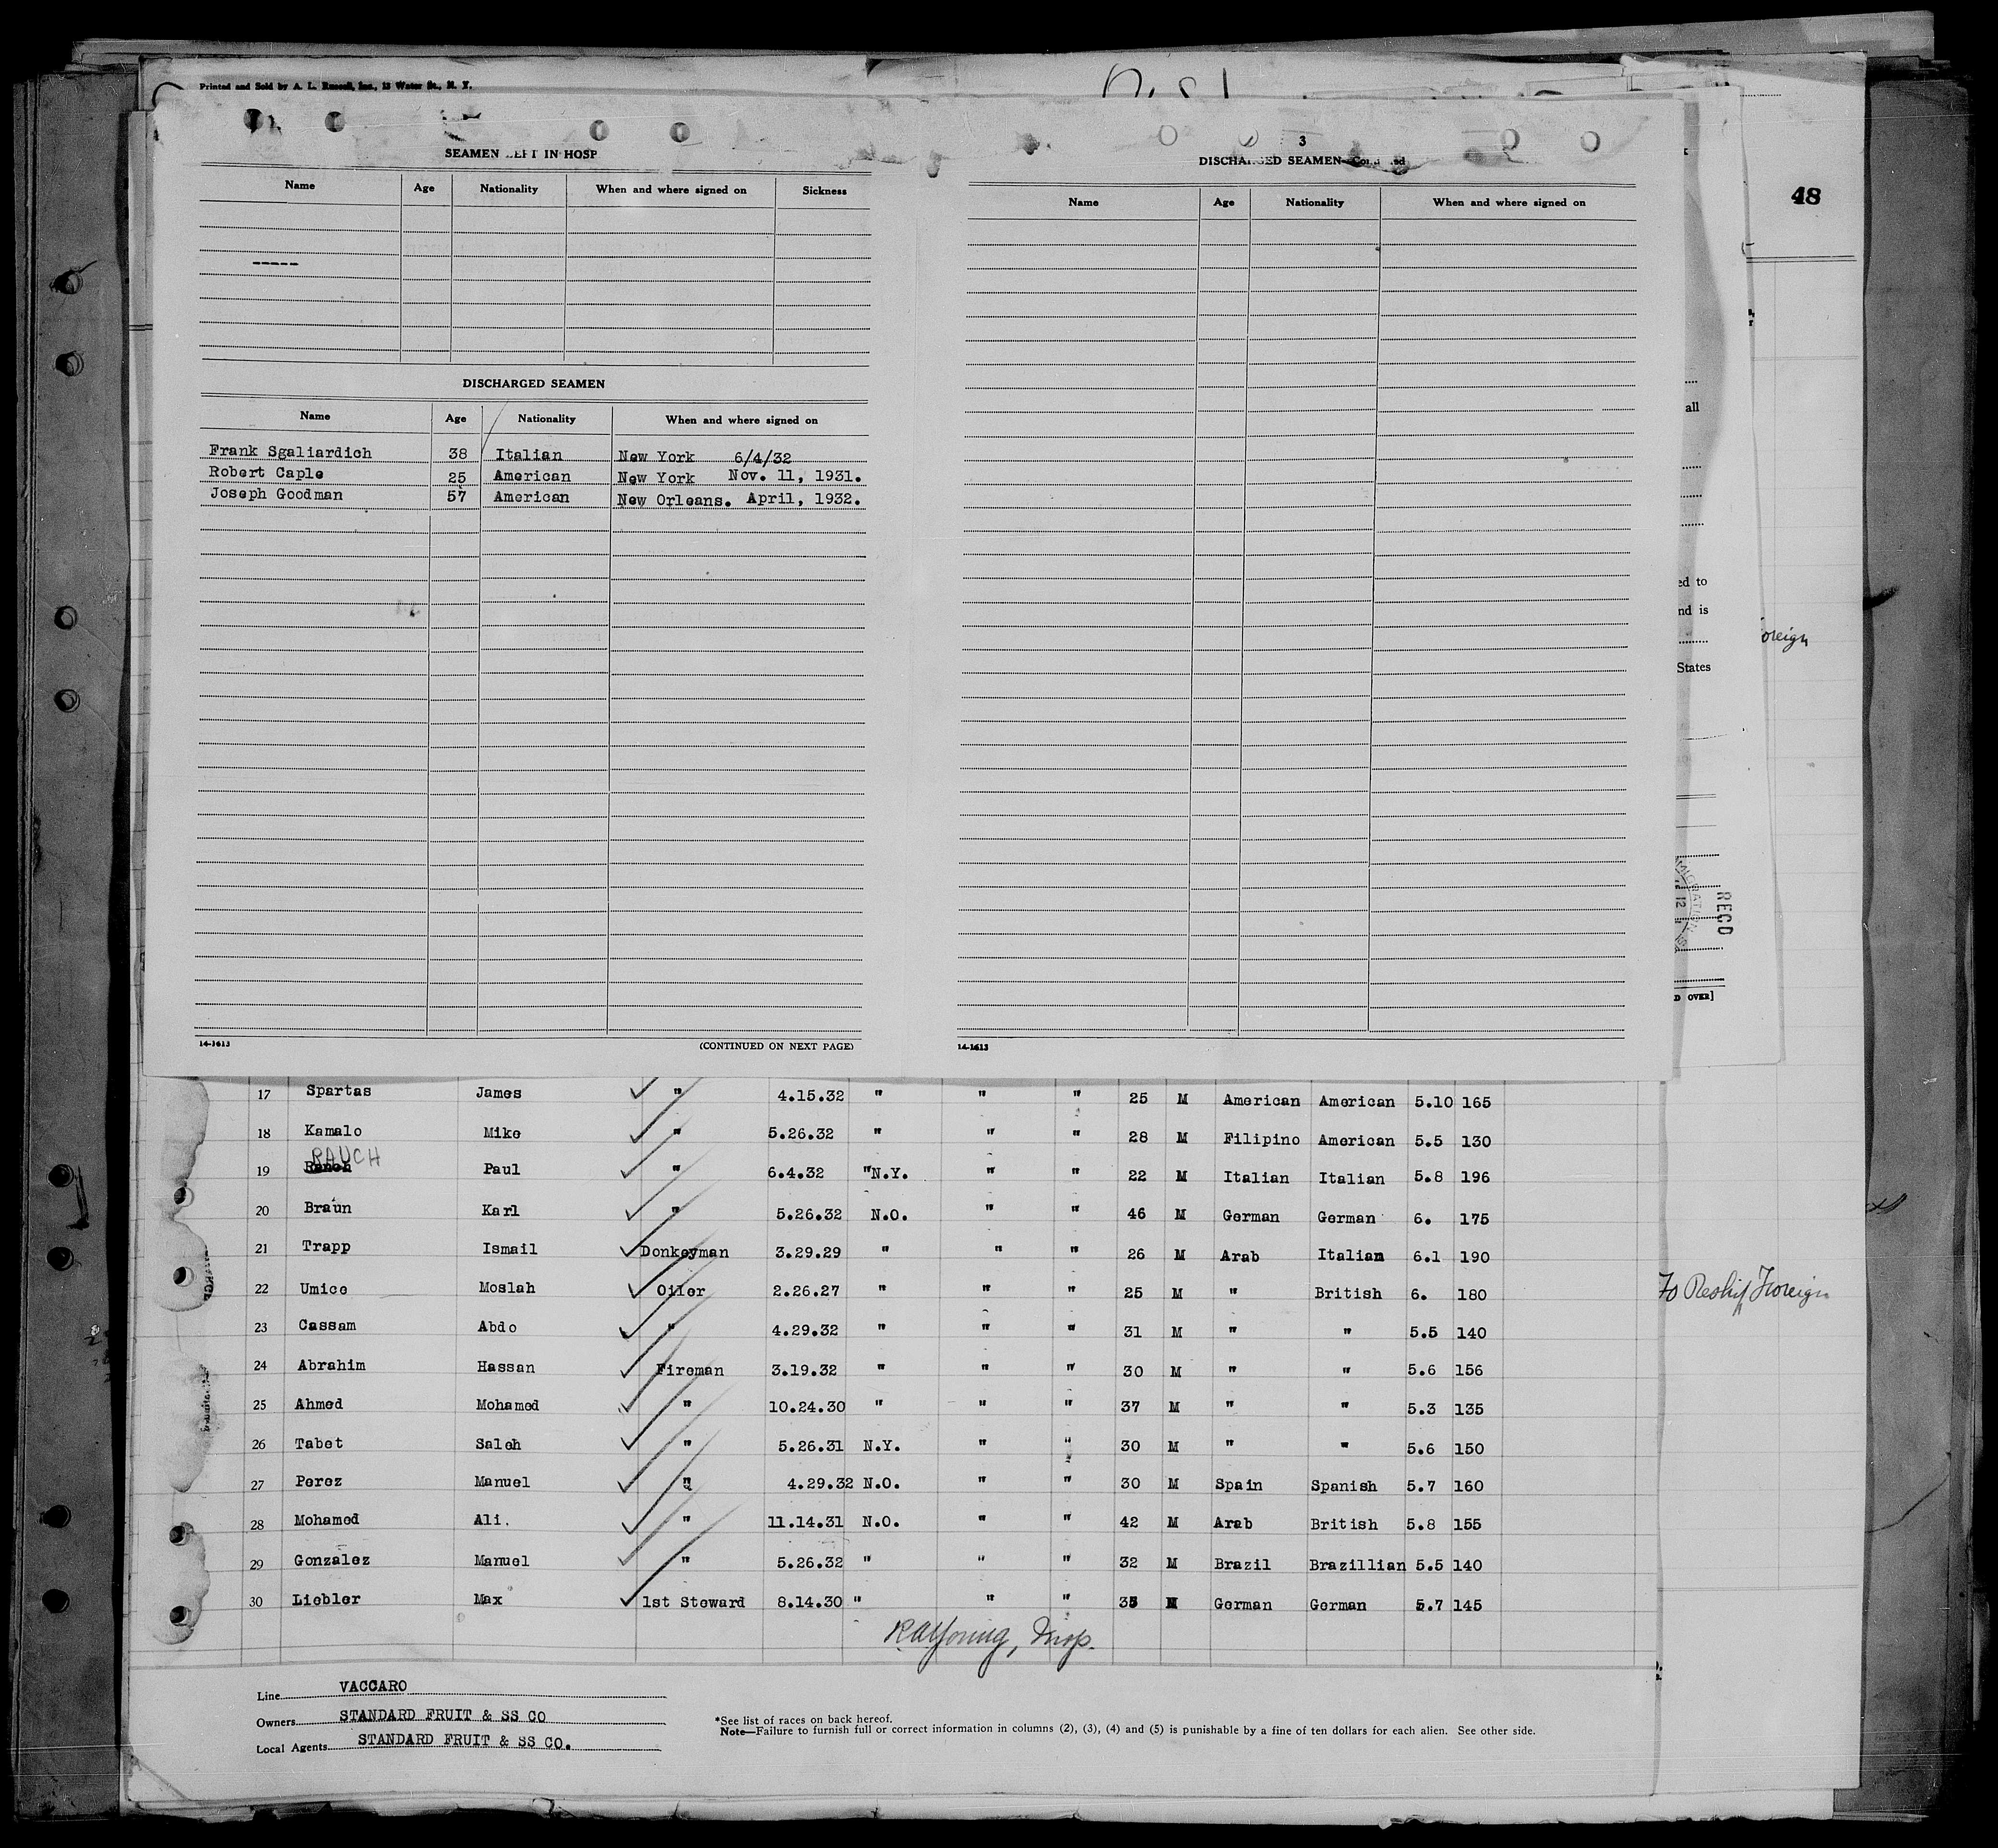 Printed and Sold by A. L. Russell, Inc., 13 Water St., N. Y.
48
SEAMEN LEFT IN HOSP
Name Age Nationality When and where signed on Sickness
-----
DISCHARGED SEAMEN
Name Age Nationality When and where signed on
Frank Sgaliardich 38 Italian New York 6/4/32
Robert Caple 25 American New York Nov. 11, 1931.
Joseph Goodman 57 American New Orleans. April, 1932.
14-1613 (CONTINUED ON NEXT PAGE)
3
DISCHARGED SEAMEN—Continued
Name Age Nationality When and where signed on
14-1613
all
ed to
nd is
oreign
States
RECD
D OVER]
17 Spartas James " 4.15.32 " " " 25 M American American 5.10 165
18 Kamalo Mike " 5.26.32 " " " 28 M Filipino American 5.5 130
RAUCH
19 Paul " 6.4.32 "N.Y. " " 22 M Italian Italian 5.8 196
20 Braun Karl " 5.26.32 N.O. " " 46 M German German 6. 175
21 Trapp Ismail Donkeyman 3.29.29 " " " 26 M Arab Italian 6.1 190
22 Umice Moslah Oiler 2.26.27 " " " 25 M " British 6. 180
To Reship Foreign
23 Cassam Abdo " 4.29.32 " " " 31 M " " 5.5 140
24 Abrahim Hassan Fireman 3.19.32 " " " 30 M " " 5.6 156
25 Ahmed Mohamed " 10.24.30 " " " 37 M " " 5.3 135
26 Tabet Saleh " 5.26.31 N.Y. " " 30 M " " 5.6 150
27 Perez Manuel " 4.29.32 N.O. " " 30 M Spain Spanish 5.7 160
28 Mohamed Ali. " 11.14.31 N.O. " " 42 M Arab British 5.8 155
29 Gonzalez Manuel " 5.26.32 " " " 32 M Brazil Brazillian 5.5 140
30 Liebler Max 1st Steward 8.14.30 " " " 35 M German German 5.7 145
RAYoung, Insp.
Line VACCARO
Owners STANDARD FRUIT & SS CO
Local Agents STANDARD FRUIT & SS CO.
*See list of races on back hereof.
Note—Failure to furnish full or correct information in columns (2), (3), (4) and (5) is punishable by a fine of ten dollars for each alien. See other side.